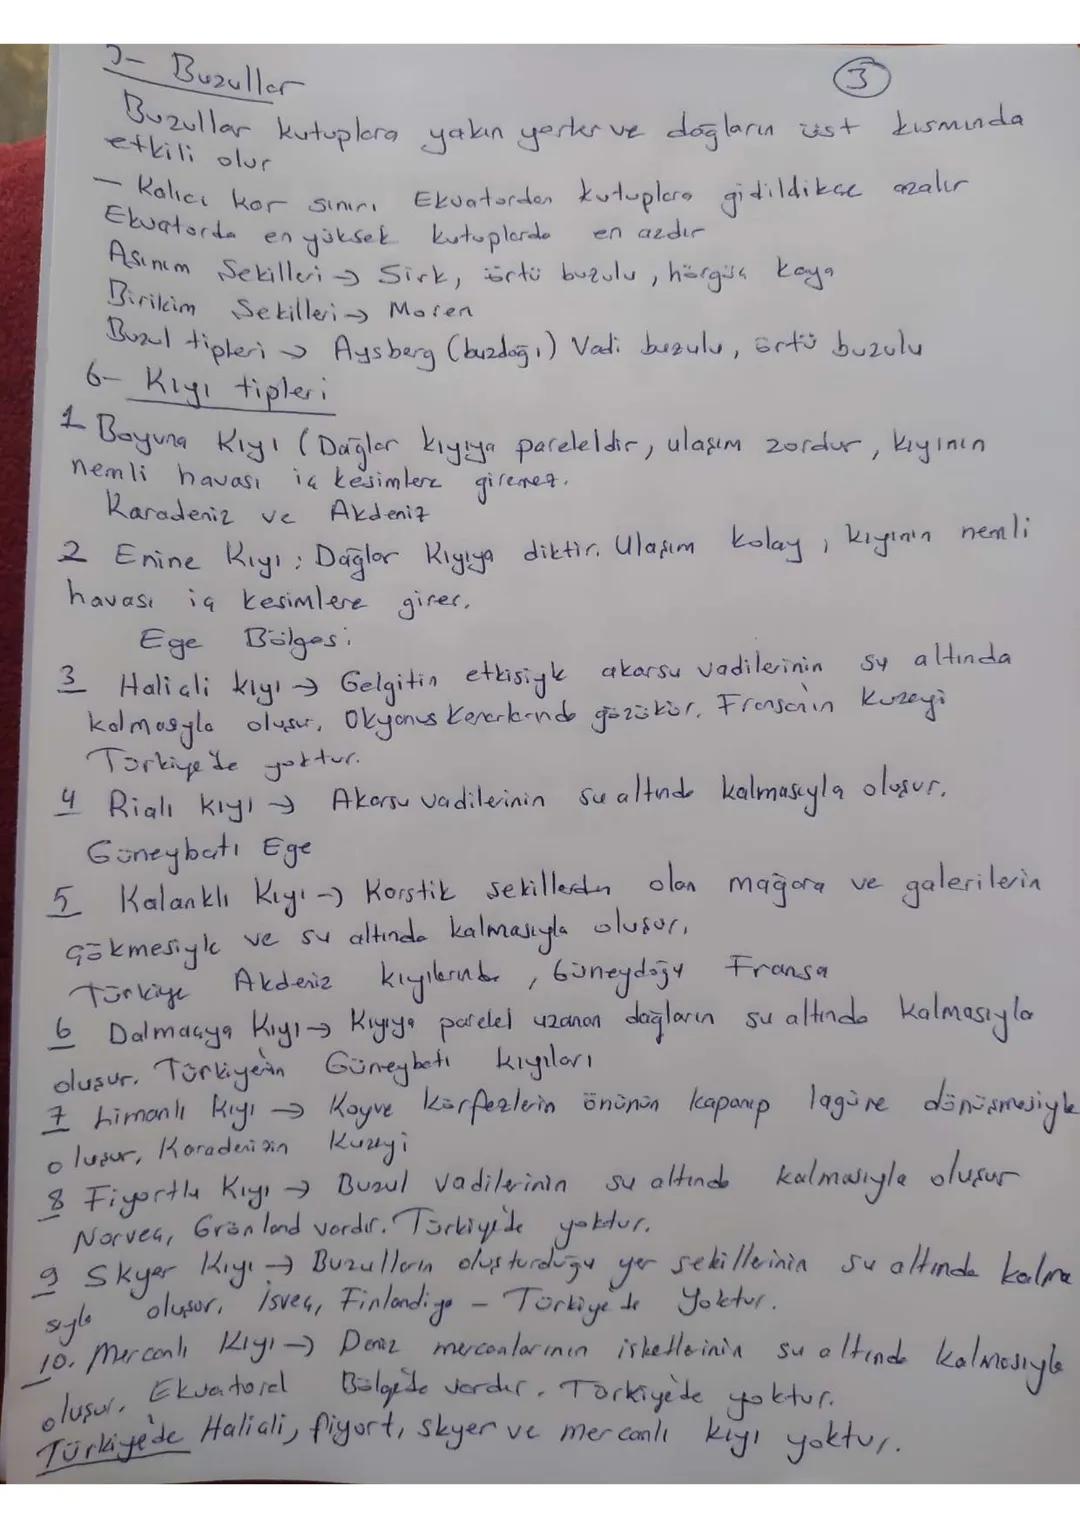 5- Buzullar
3
Buzullar kutuplara yakın yerler ve dağların üst kısmında
etkili olur
- Kalıcı kar sınırı Ekvatordan kutuplara gidildikçe azalır
Ekvatorda en yüksek kutuplarda en azdır
Asınım Sekilleri → Sirk, örtü buzulu, hörgüç kaya
Birikim Sekilleri → Moren
Buzul tipleri → Aysberg (buzdağı) Vadi buzulu, örtü buzulu
6- Kıyı tipleri
1 Boyuna Kıyı (Dağlar kıyıya pareleldir, ulaşım zordur, kıyının
nemli havası iç kesimlere giremez.
Karadeniz ve Akdeniz
2 Enine Kıyı: Dağlar Kıyıya diktir. Ulaşım kolay, kıyının nemli
havası iç kesimlere girer.
Ege Bölgesi
3 Haliçli kıyı → Gelgitin etkisiyle akarsu vadilerinin su altında
kalmasyla oluşur. Okyanus kenarlarında gözükür. Fransa'nın kuzeyi
Türkiye'de yoktur.
4 Rialı kıyı → Akarsu vadilerinin su altında kalmasıyla oluşur.
Güneybatı Ege
5 Kalanklı Kıyı → Karstik sekillerden olan mağara ve galerilerin
çökmesiyle ve su altında kalmasıyla oluşur.
Türkiye Akdeniz kıyılarında, Güneydoğu Fransa
6 Dalmaçya Kıyı → Kıyıya parelel uzanan dağların su altında kalmasıyla
oluşur. Türkiye'nin Güneybatı kıyıları
7 Limanlı Kıyı → Koyve körfezlerin önünün kapanıp lagüne dönüşmesiyle
oluşur, Karadenizin Kuzeyi
8 Fiyortlu Kıyı → Buzul vadilerinin su altında kalmasıyla oluşur
Norveç, Grönland vardır. Türkiye'de yoktur.
9 Skyer Kıyı → Buzulların oluşturduğu yer sekillerinin su altında kalma
sıyla oluşur, İsveç, Finlandiya - Türkiye'de Yoktur.
10. Mercanlı Kıyı → Deniz mercanlarının isketlerinin su altında kalmasıyla
oluşur. Ekvatoral Bölge'de vardır. Türkiye'de yoktur.
Türkiye'de Haliçli, fiyort, skyer ve mercanlı kıyı yoktur.